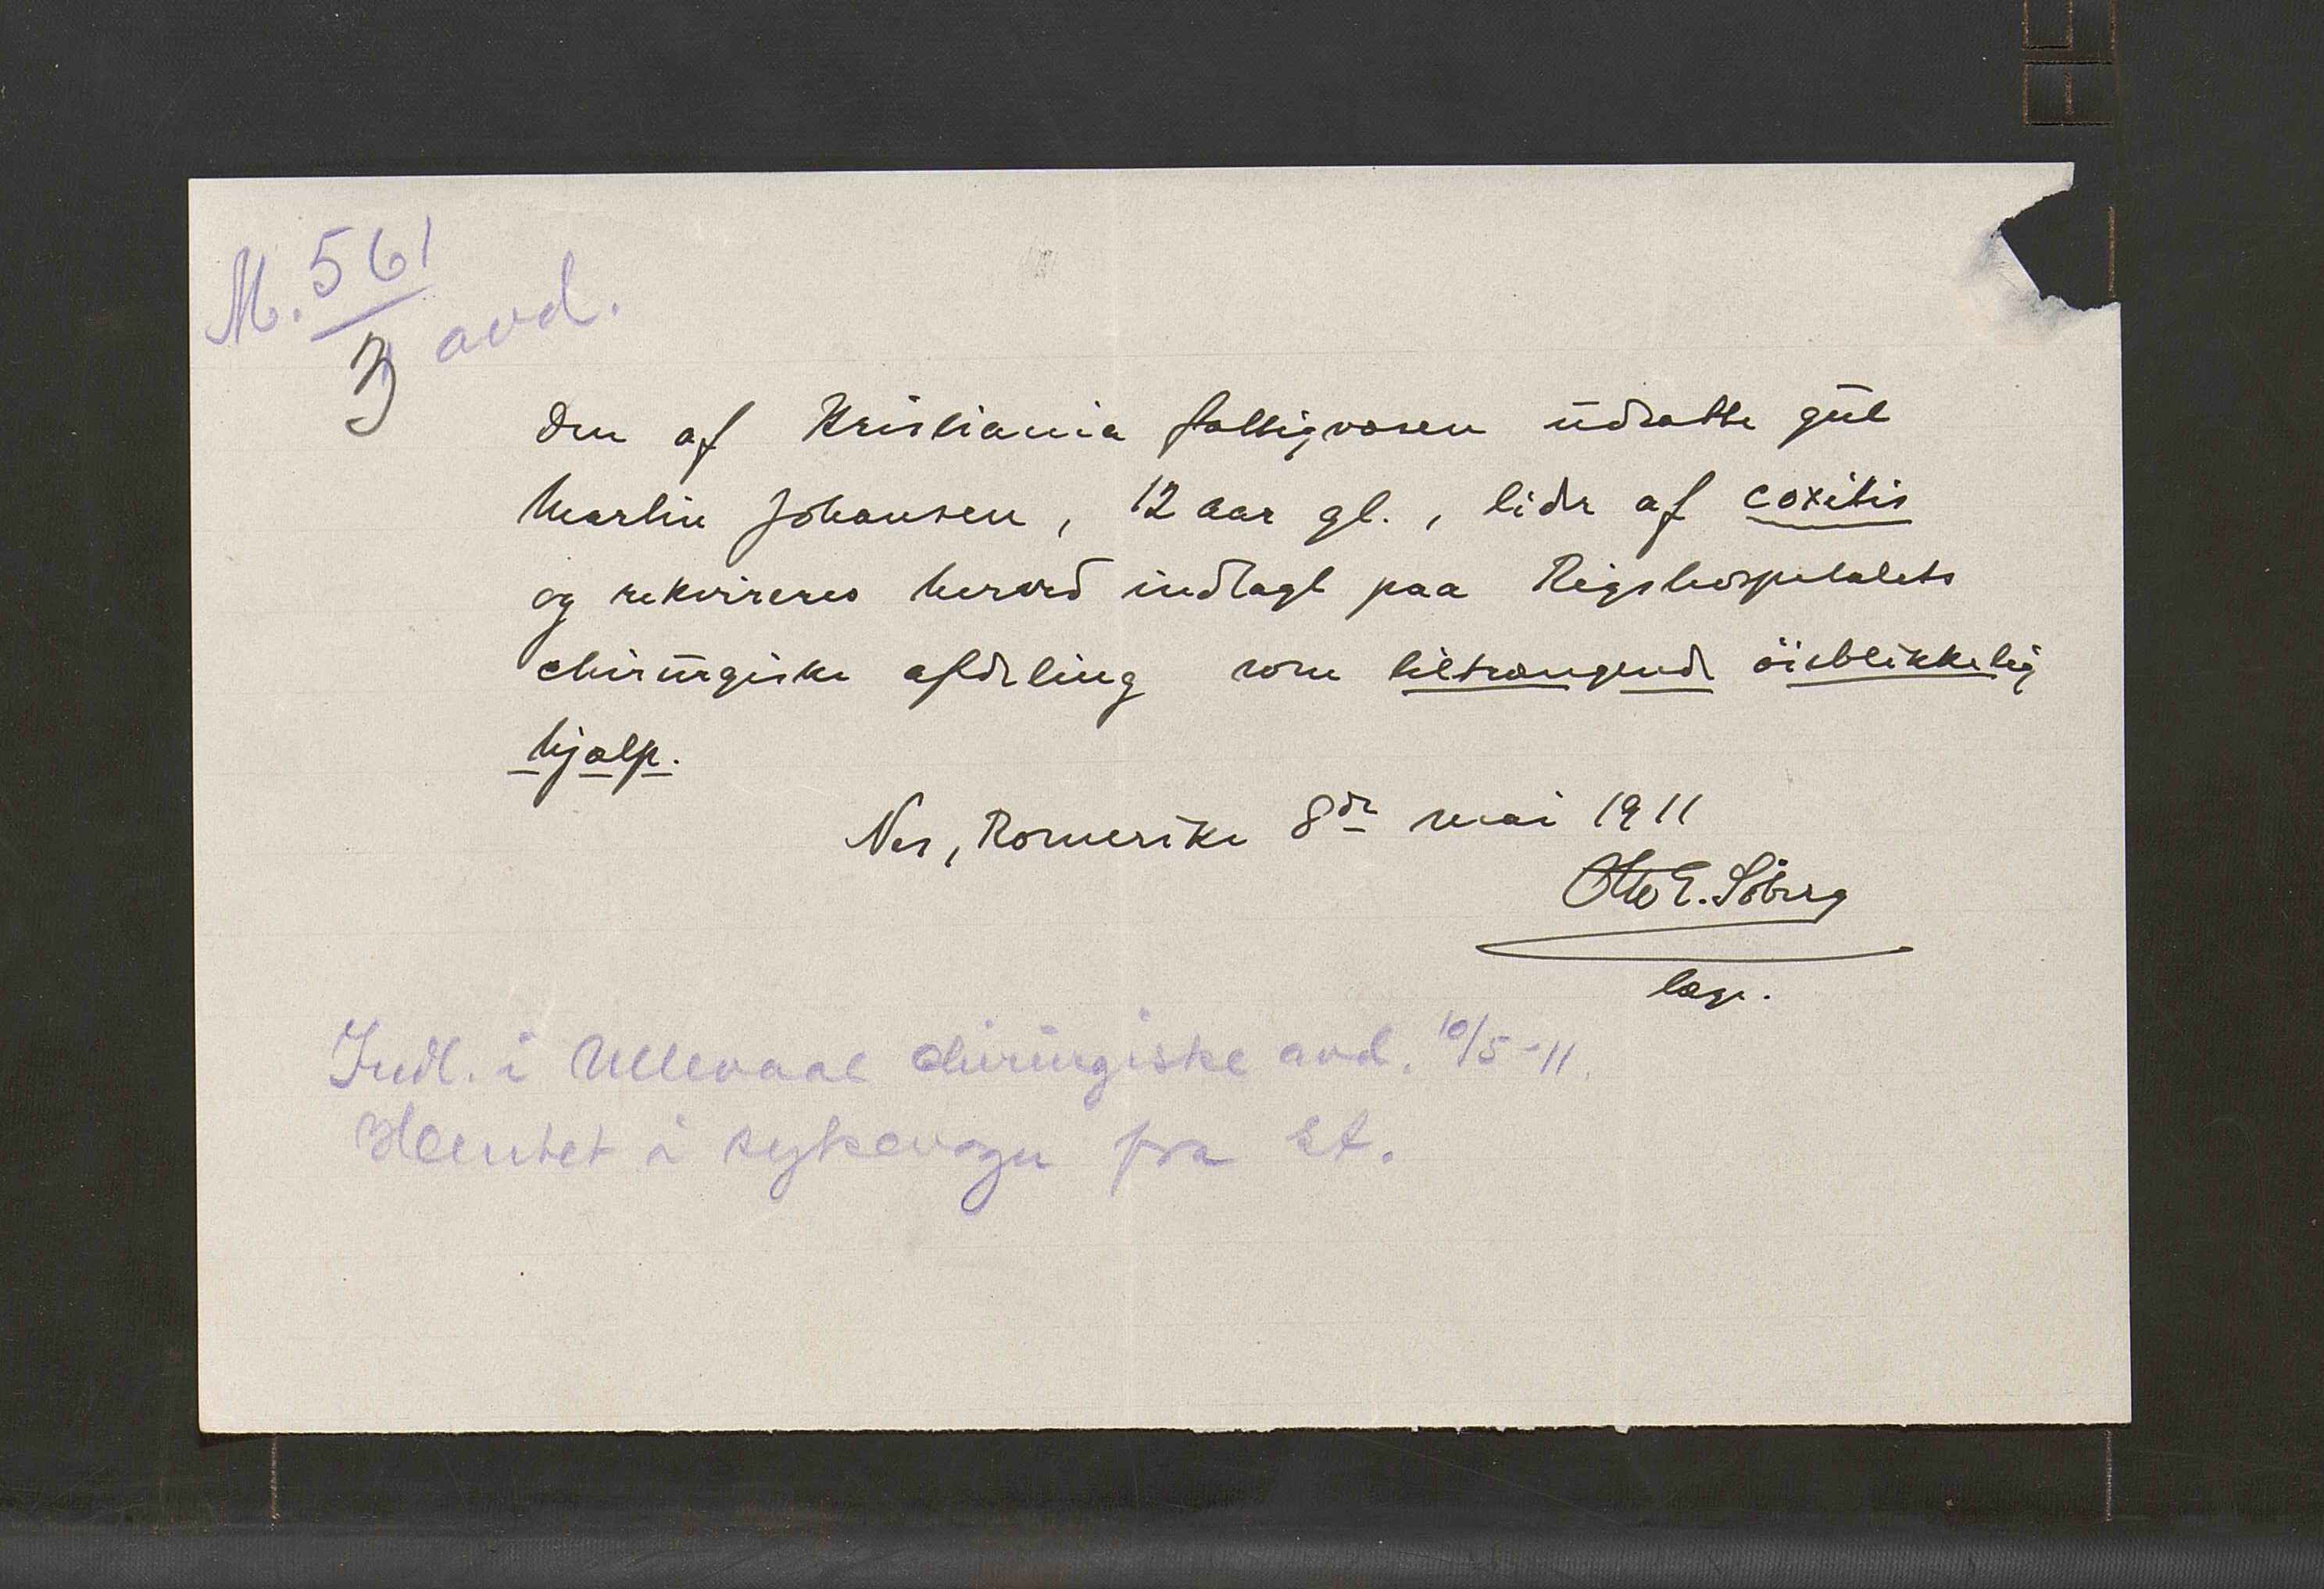 M. 561
3 avd.
Den af Kristiania fattigvæsen udsatte gut
Martin Johansen, 12 aar gl., lider af coxitis
og rekvireres herved indlagt paa Rigshospitalets
chirurgiske afdeling som tiltrængende öieblikkelig
hjælp.
Nes, Romerike 8de mai 1911
Otto E. Söberg
læge.
Indl. i Ullevaal chirurgiske avd. 10/5-11.
Hentet i sykevogn fra St.